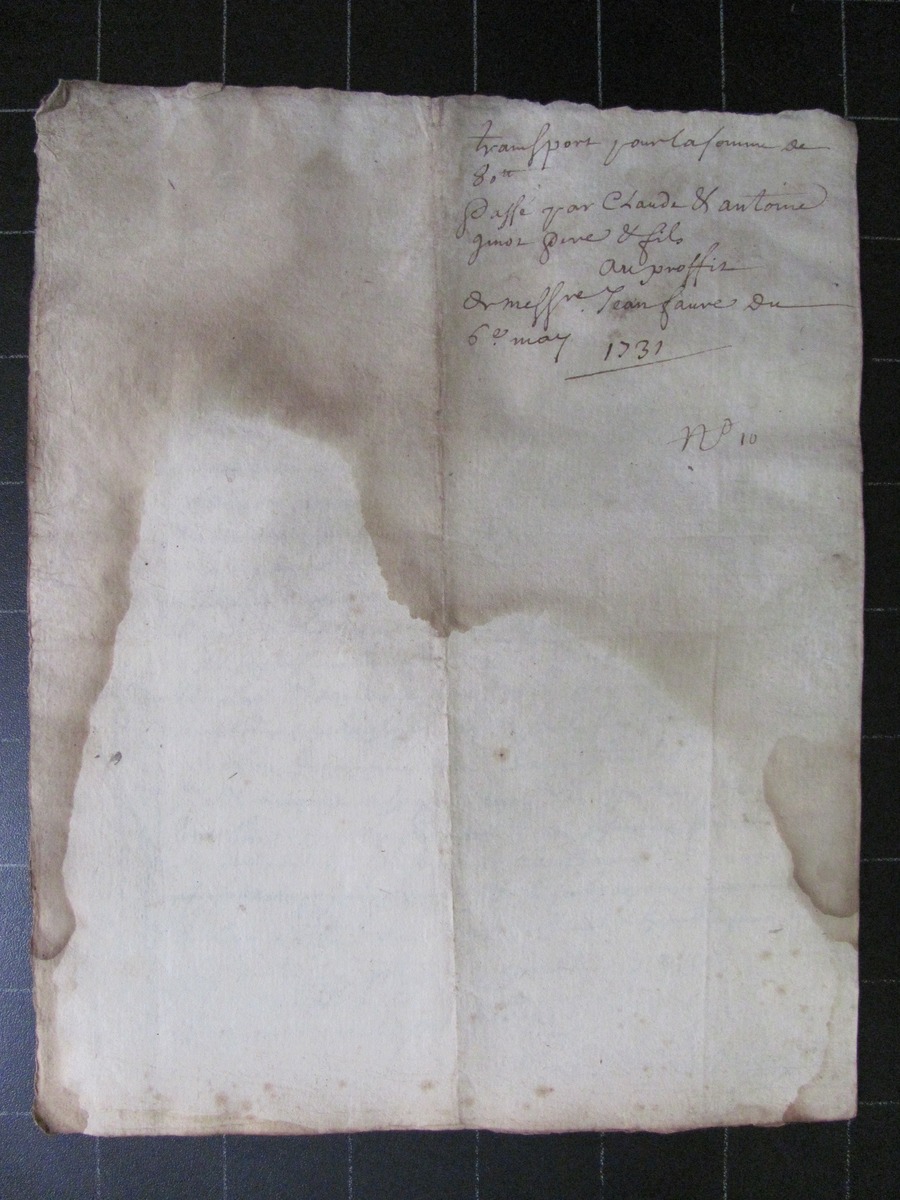 transport pour la somme de
80tt
Passé par Claude & antoine
ginot Pere & fils
au proffit
de messre. Jean faure du
6e. may 1731
No 10